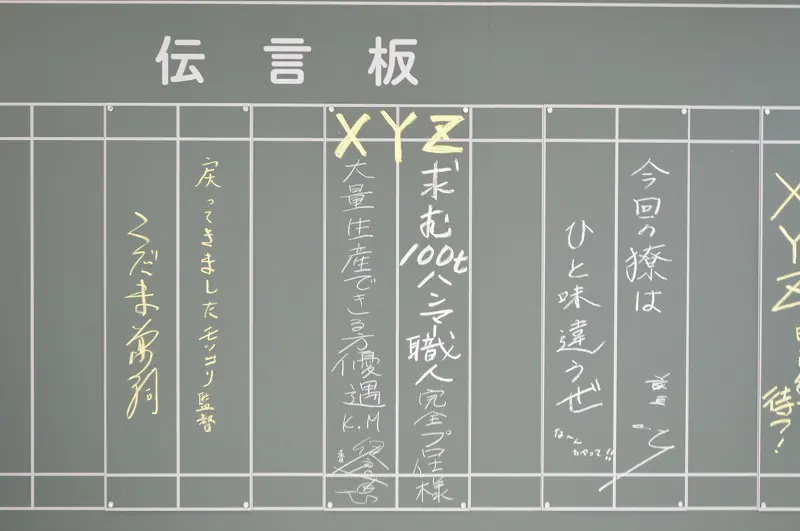 伝言板
XYZ
待つ!
今回の獠は
ひと味違うぜ
な〜んちゃって!!
XYZ
求む100tハンマー職人完全プロ仕様
大量生産できる方優遇K.M
戻ってきましたモッコリ監督
こだま兼嗣